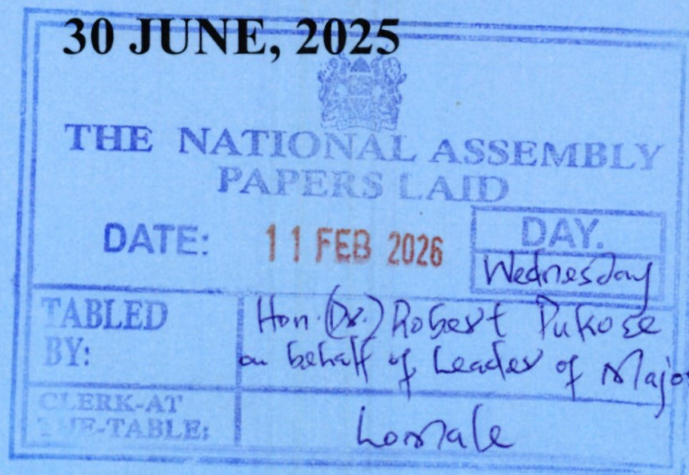 30 JUNE, 2025
THE NATIONAL ASSEMBLY
PAPERS LAID
DATE: 11 FEB 2026
DAY.
Wednesday
TABLED BY:
Hon. (Dr.) Robert Pukose
on behalf of Leader of Majo
CLERK-AT
THE-TABLE: